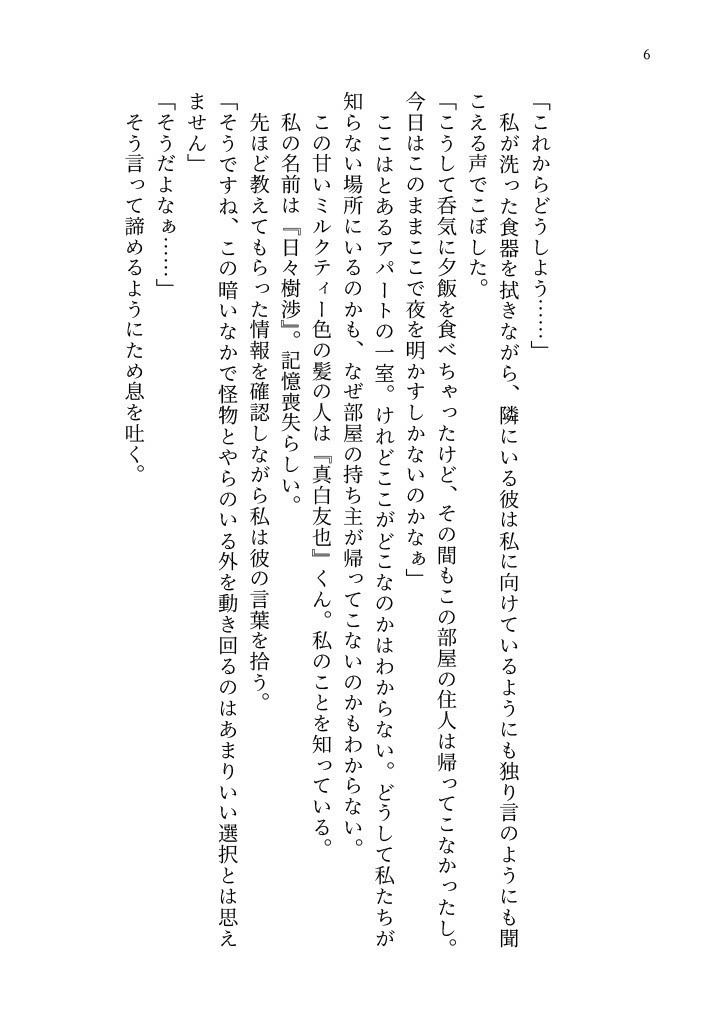 6
「これからどうしよう……」
　私が洗った食器を拭きながら、隣にいる彼は私に向けているようにも独り言のようにも聞
こえる声でこぼした。
「こうして呑気に夕飯を食べちゃったけど、その間もこの部屋の住人は帰ってこなかったし。
今日はこのままここで夜を明かすしかないのかなぁ」
　ここはとあるアパートの一室。けれどここがどこなのかはわからない。どうして私たちが
知らない場所にいるのかも、なぜ部屋の持ち主が帰ってこないのかもわからない。
　この甘いミルクティー色の髪の人は『真白友也』くん。私のことを知っている。
　私の名前は『日々樹渉』。記憶喪失らしい。
　先ほど教えてもらった情報を確認しながら私は彼の言葉を拾う。
「そうですね、この暗いなかで怪物とやらのいる外を動き回るのはあまりいい選択とは思え
ません」
「そうだよなぁ……」
　そう言って諦めるようにため息を吐く。